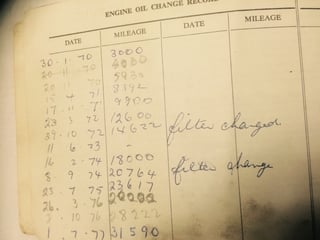 ENGINE OIL CHANGE RECORD
DATE MILEAGE DATE MILEAGE
30 · 1 · 70 3000
20 · 11 · 70
20 70 5930
71 8192
17 · 11 · 9900
23 · 3 · 72 12600
29 · 10 · 72 14622 filter changed
11 6 73 -
16 · 2 · 74 18000
8 · 9 · 74 20764 filter change
23 · 7 · 75 23617
26 · 3 · 76
3 · 10 · 76 28222
1 · 7 · 77 31590